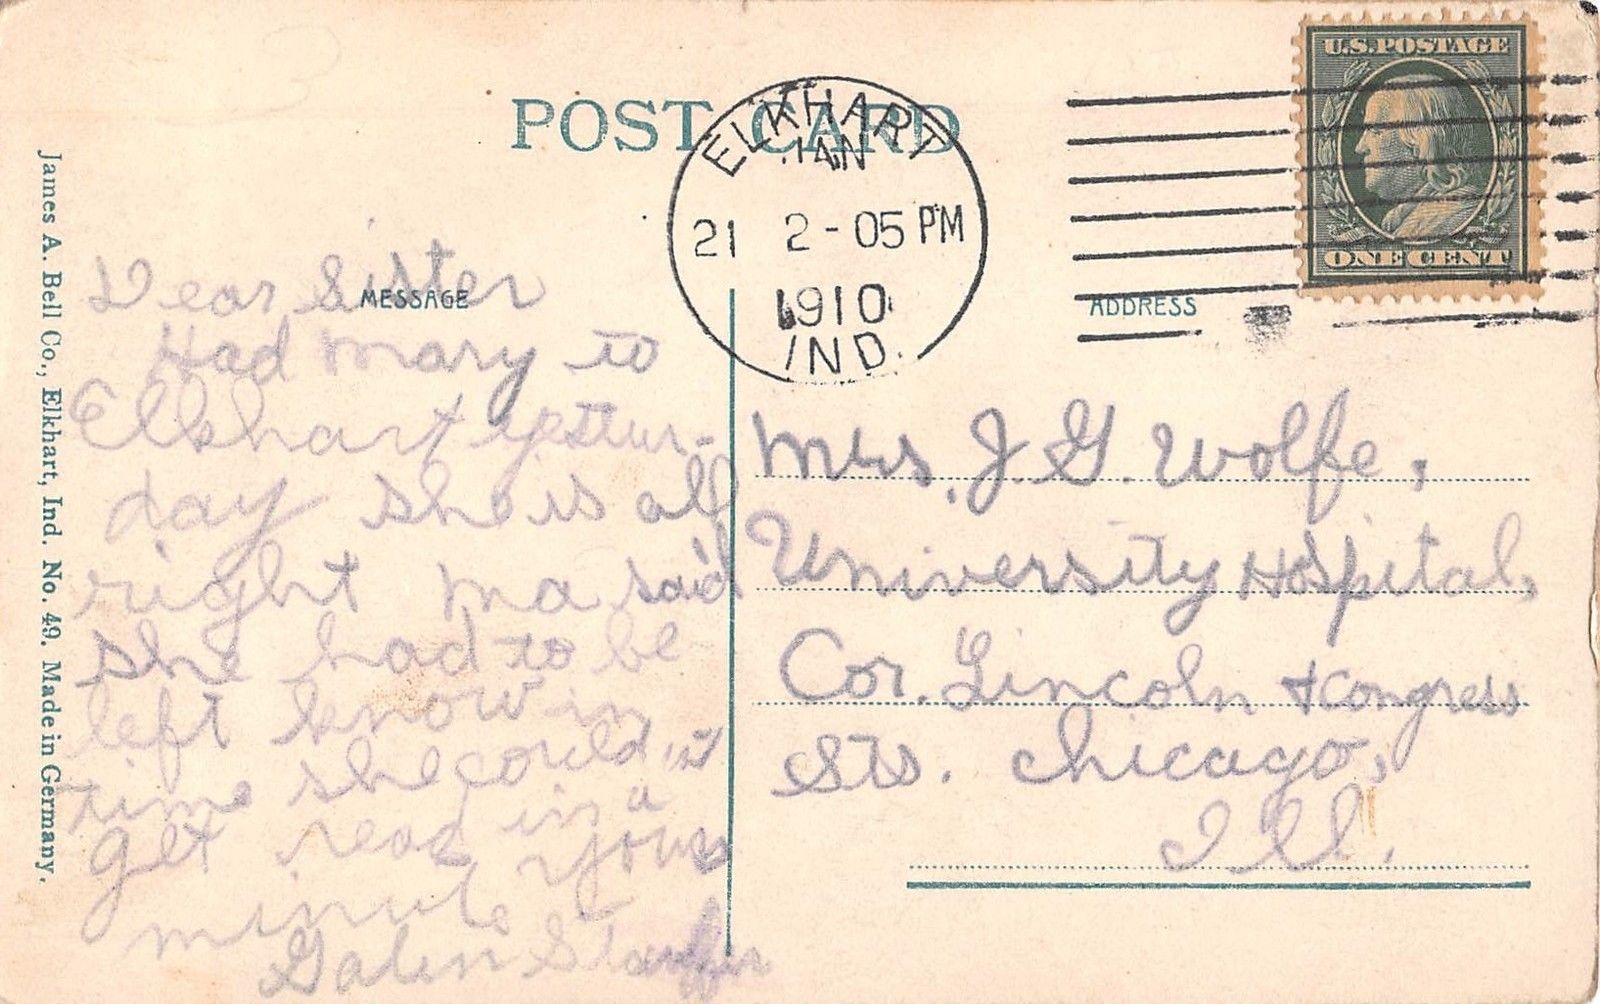 POST CARD
ELKHART
JAN
21 2-05 PM
1910
IND.
U.S. POSTAGE
ONE CENT
MESSAGE
ADDRESS
James A. Bell Co., Elkhart, Ind. No. 49. Made in Germany.
Dear Sister
Had Mary to
Elkhart yestur-
day she is all
right Ma said
she had to be
left know in
time she could'nt
get read in a
minute Yours
Galen
Mrs. J. G. Wolfe,
University Hospital,
Cor. Lincoln & Congress
Sts. Chicago,
Ill.